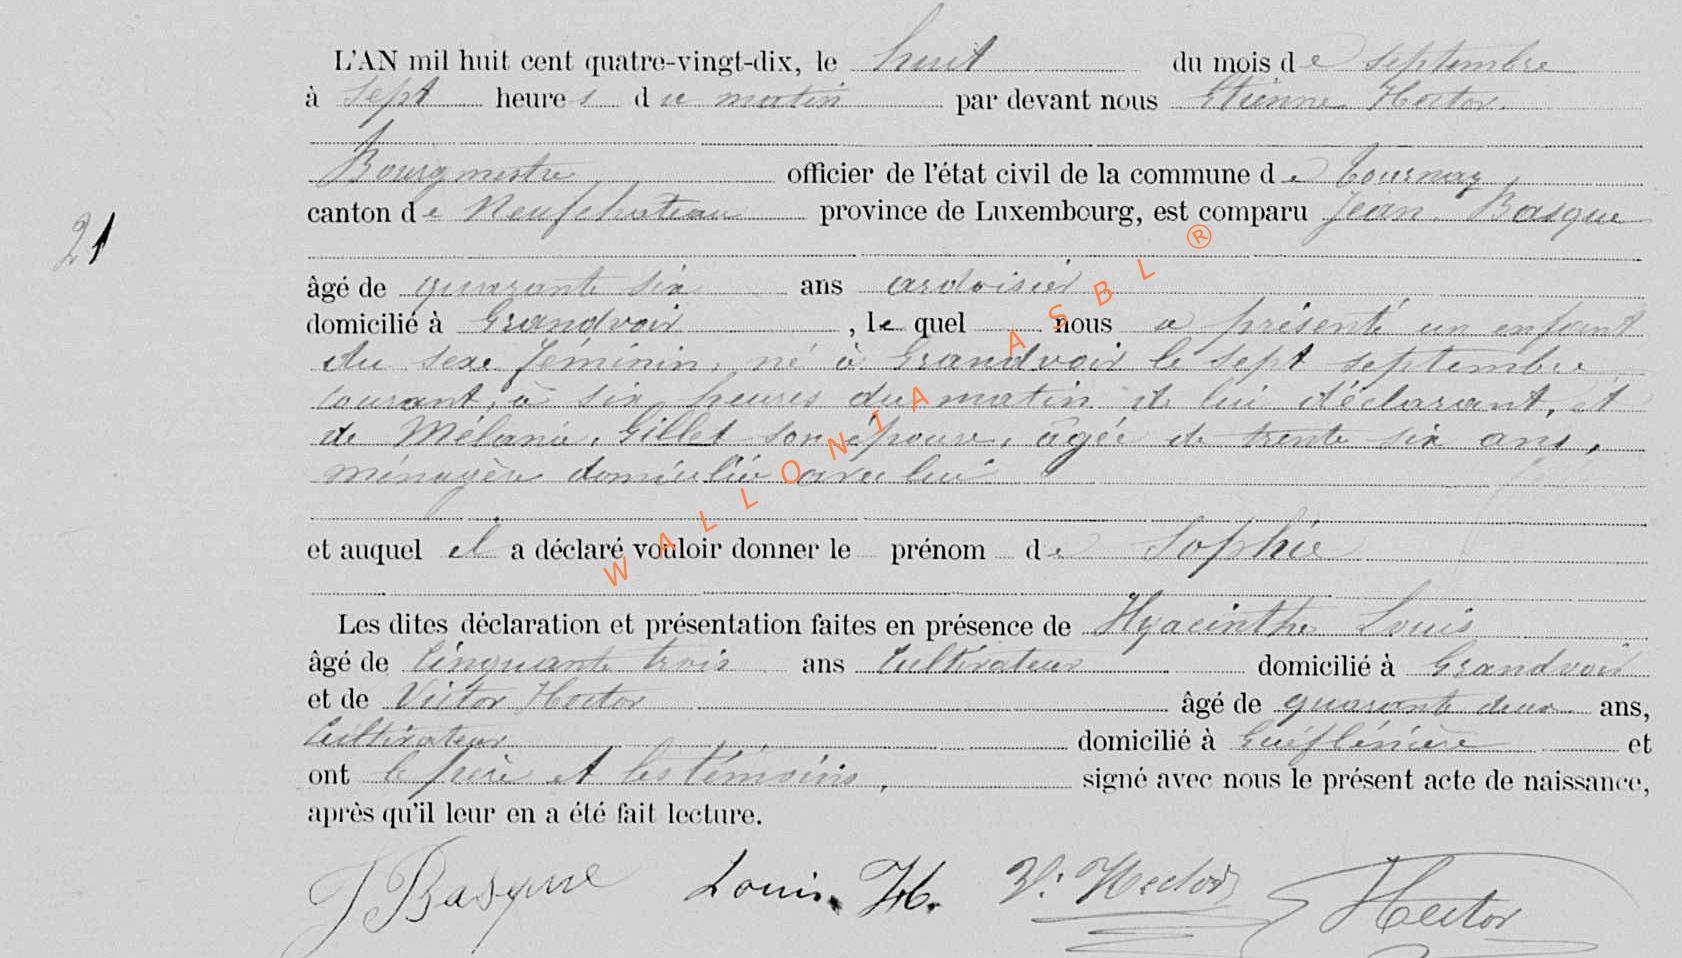 L'AN mil huit cent quatre-vingt-dix, le huit du mois de septembre
à sept heures du matin par devant nous Etienne Hector.
Bourgmestre officier de l'état civil de la commune de Tournay
canton de Neufchateau province de Luxembourg, est comparu Jean Basque
21
âgé de quarante six ans ardoisier
domicilié à Grandvoir, le quel nous a présenté un enfant
du sexe féminin, né à Grandvoir le sept septembre
courant, à six heures du matin de lui déclarant, et
de Mélanie Gillet son épouse, âgée de trente six ans,
ménagère domiciliée avec lui
et auquel il a déclaré vouloir donner le prénom de Sophie
Les dites déclaration et présentation faites en présence de Hyacinthe Louis
âgé de cinquante trois ans Cultivateur domicilié à Grandvoir
et de Victor Hector âgé de quarante deux ans,
Cultivateur domicilié à et
ont le père et les témoins, signé avec nous le présent acte de naissance,
après qu'il leur en a été fait lecture.
J Basque Louis. H. V. Hector Hector
WALLONIA ASBL ®